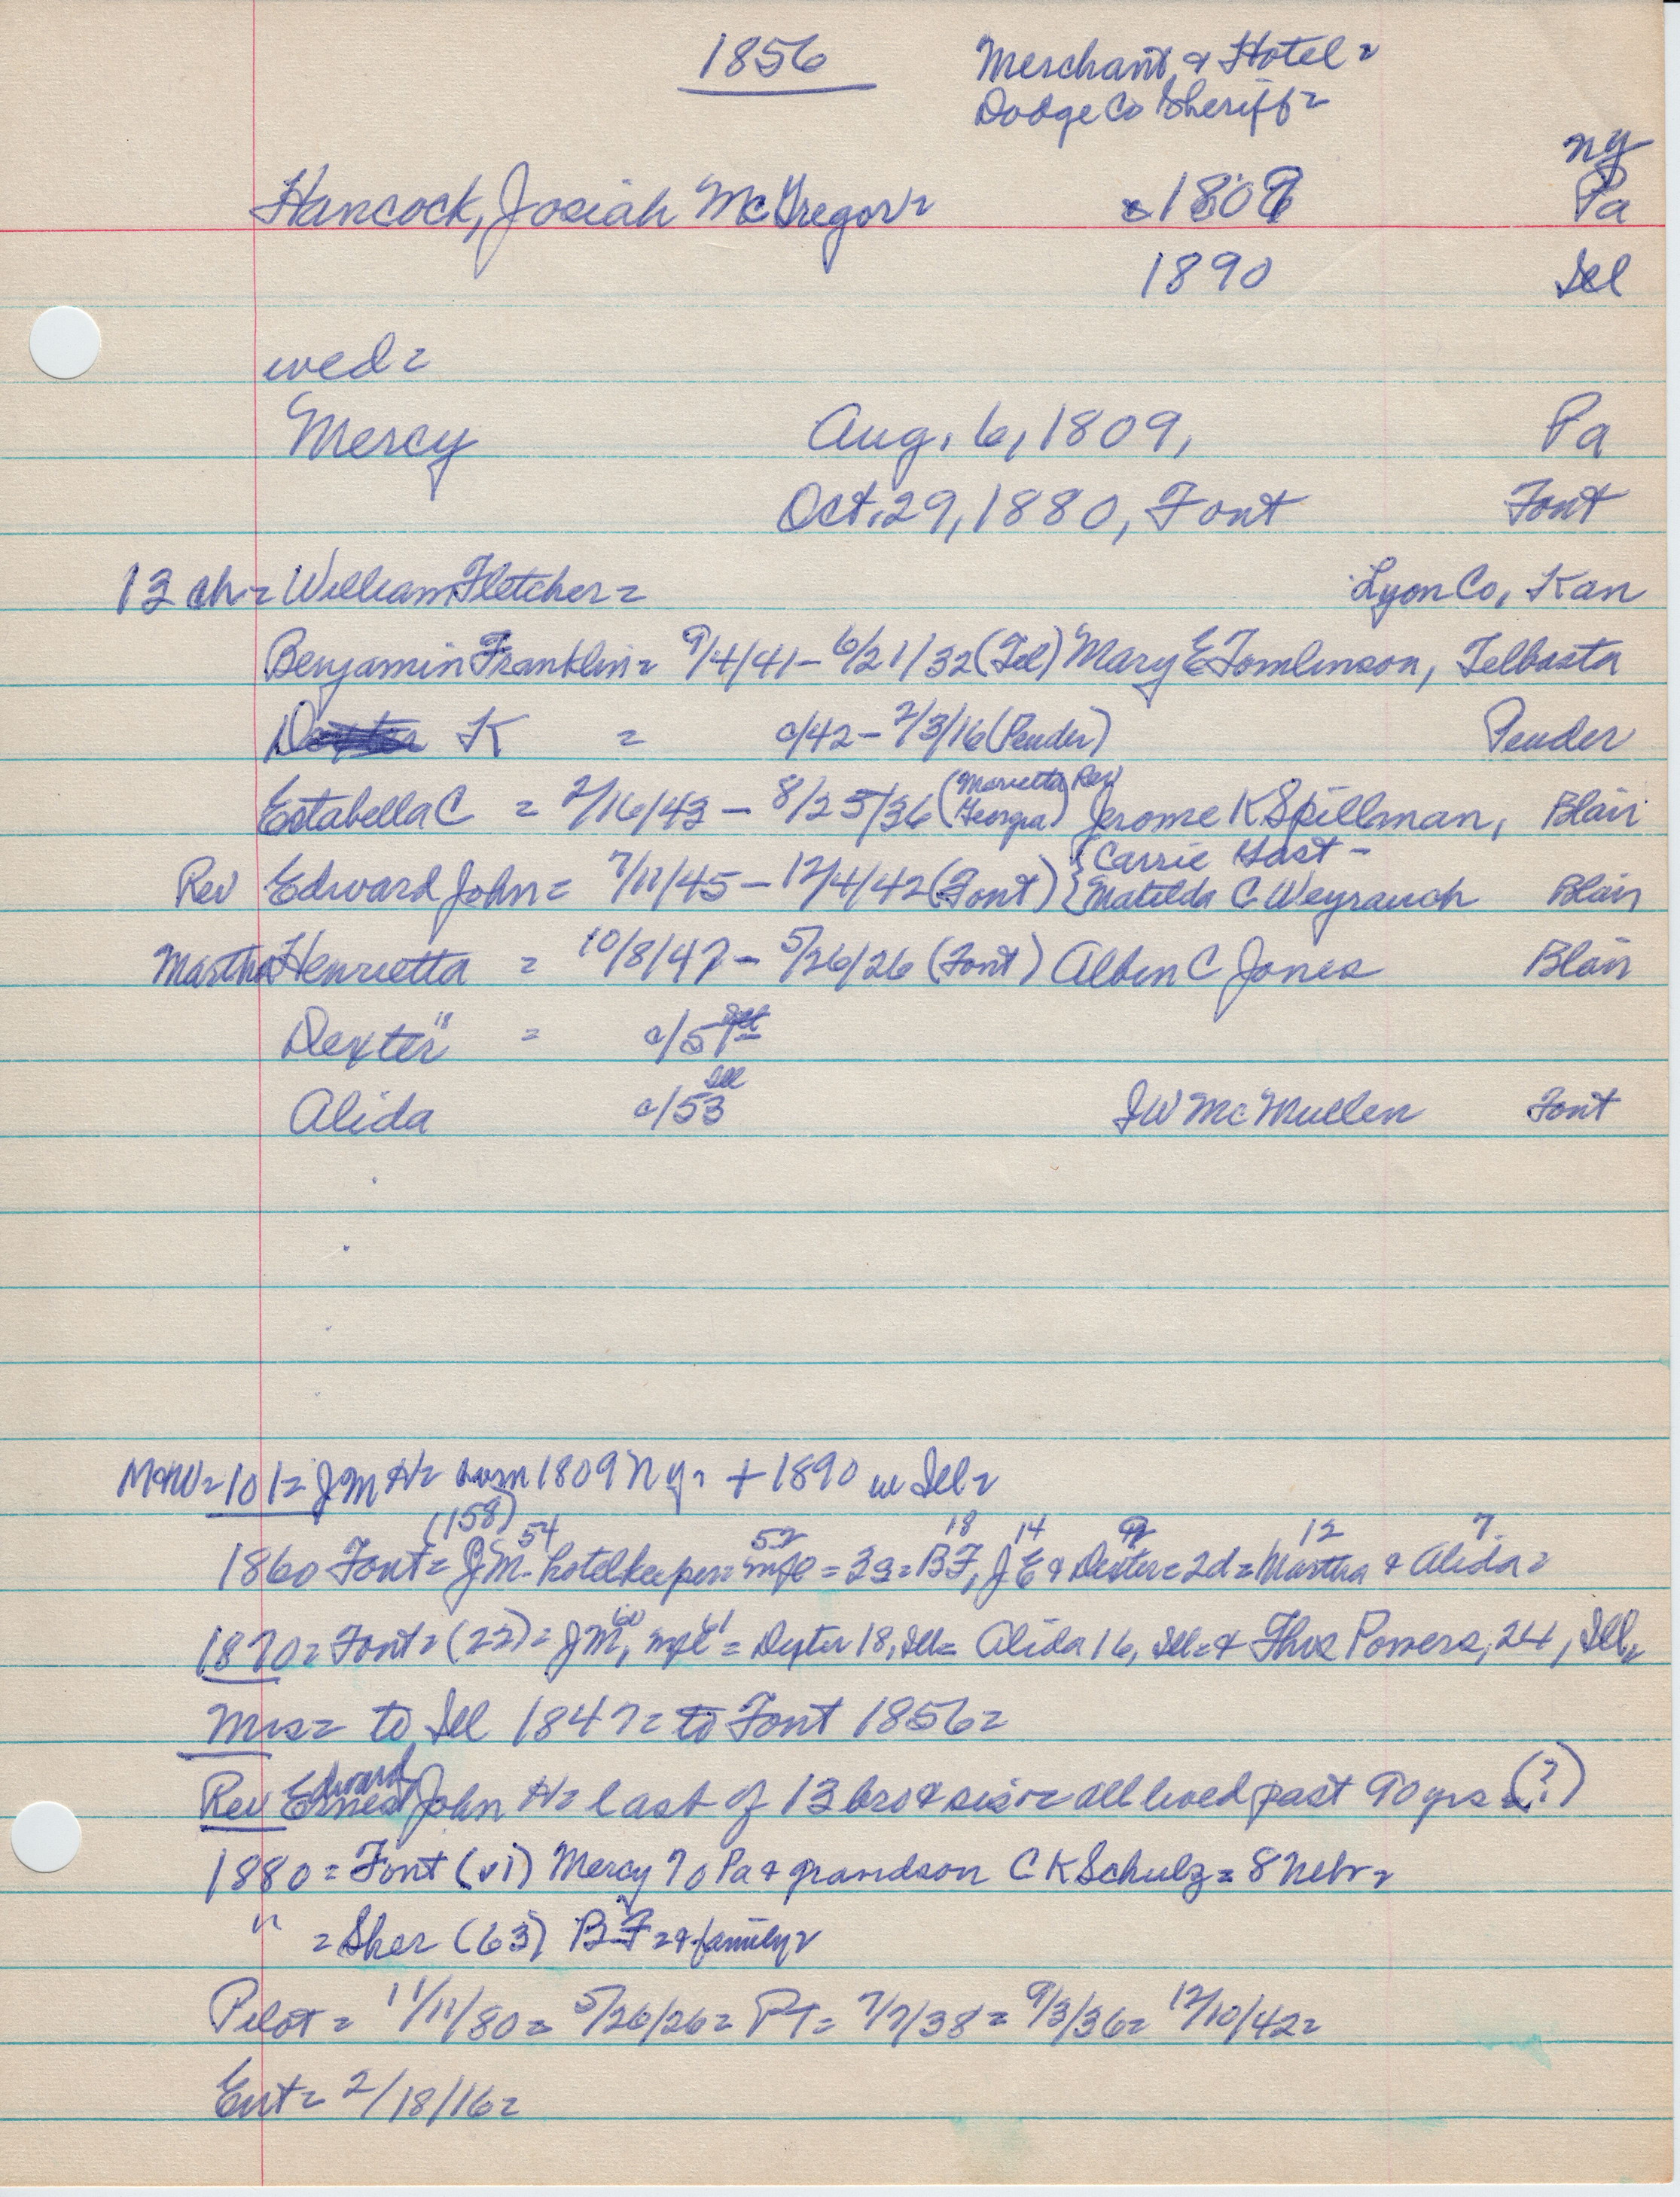 1856
Merchant & Hotel =
Dodge Co Sheriff =
NY
Hancock, Josiah McGregor = c 1809 Pa
1890 Ill
wed =
Mercy Aug. 6, 1809, Pa
Oct. 29, 1880, Font Font
13 ch = William Fletcher = Lyon Co, Kan
Benjamin Franklin = 9/4/41 - 6/21/32 (Tel) Mary E Tomlinson, Telbasta
K = c/42 - 2/3/16 (Pender) Pender
Estabella C = 2/16/43 - 8/25/36 (Marietta Georgia) Rev Jerome K Spillman, Blair
Rev Edward John = 7/11/45 - 12/4/42 (Font) { Carrie Gast -
{ Matilda C Weyrauch Blair
Martha Henrietta = 10/8/47 - 5/26/26 (Font) Alben C Jones Blair
Dexter " = c/51
Alida c/53 Ill J W McMullen Font
M&W = 101 = J M H = born 1809 NY = + 1890 in Ill =
1860 Font = (158) J M - 54 hotelkeeper = wife 52 = 3s = B F, 18 J E 14 & Dexter 9 = 2d = Martha 12 & Alida 7 =
1870 = Font = (22) = J M, 60 wife 61 = Dexter 18, Ill = Alida 16, Ill = & Thos Powers, 24, Ill =
Mrs = to Ill 1847 = to Font 1856 =
Rev Edward John H = last of 13 bro & sis = all lived past 90 yrs = (?)
1880 = Font (vi) Mercy 70 Pa & grandson C K Schulz = 8 Nebr =
" = Sher (63) B F = & family =
Pilot = 11/11/80 = 5/26/26 = PT = 7/7/38 = 9/3/36 = 12/10/42 =
Ent = 2/18/16 =